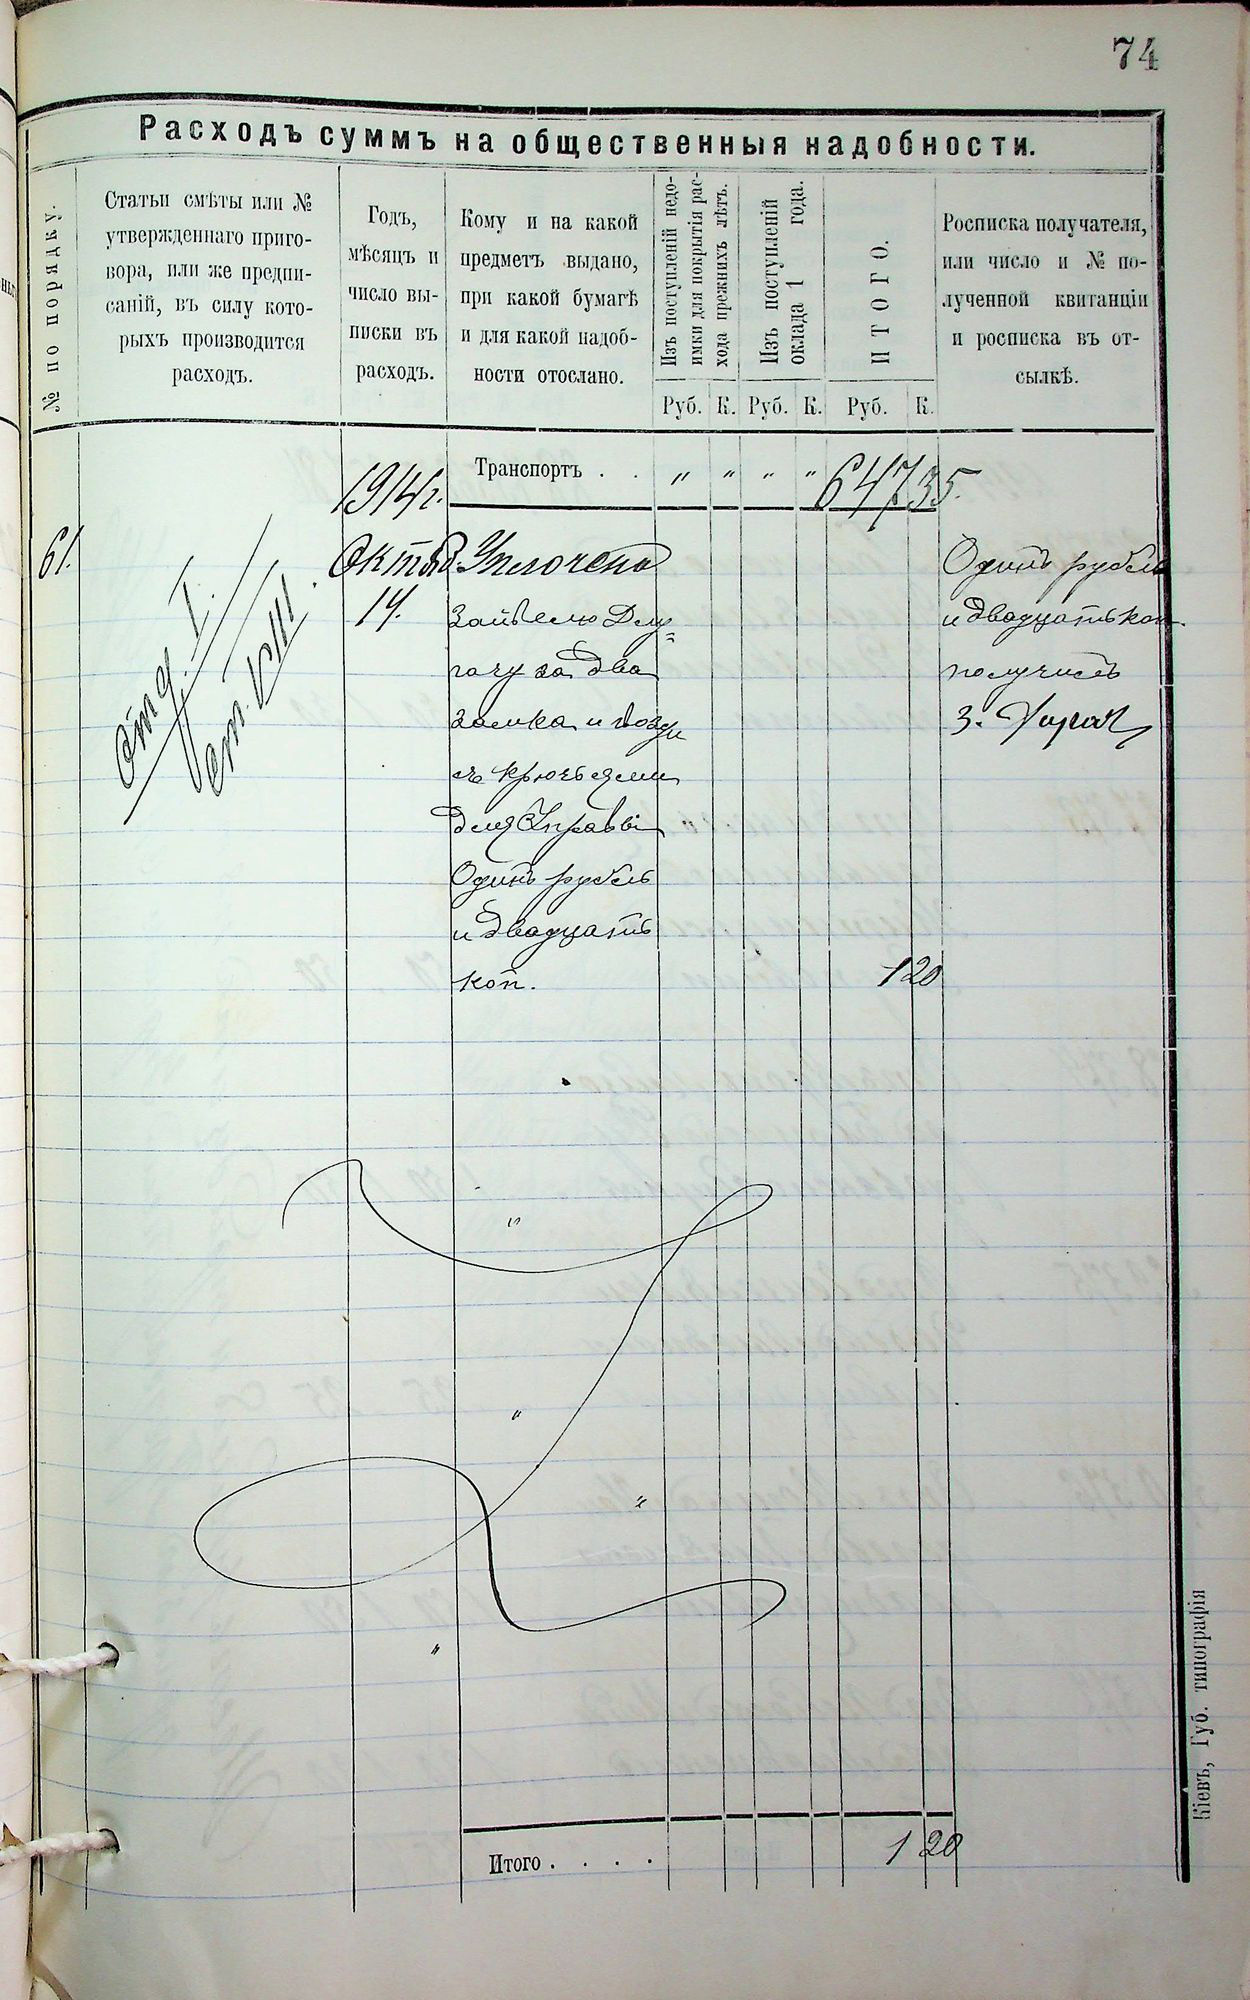 74
Расходъ суммъ на общественныя надобности.
№ по порядку.
Статьи смѣты или №
утвержденнаго приго-
вора, или же предпи-
саній, въ силу кото-
рыхъ производится
расходъ.
Годъ,
мѣсяцъ и
число вы-
писки въ
расходъ.
Кому и на какой
предметъ выдано,
при какой бумагѣ
и для какой надоб-
ности отослано.
Изъ поступленій недо-
имки для покрытія рас-
хода прежнихъ лѣтъ.
Изъ поступленій
оклада 1 года.
ИТОГО.
Росписка получателя,
или число и № по-
лученной квитанціи
и росписка въ от-
сылкѣ.
Руб. К. Руб. К. Руб. К.
1914 г. Транспортъ . . " " " " 647 35.
61.
Отд. I.
ст. VIII.
Октяб.
14.
Уплочено
Зайвелю Длу=
гачу за два
замка и
съ крючьями
для Управы
Одинъ рубль
и двадцать
коп. 1 20
Одинъ рубль
и двадцать коп.
получилъ
З.
"
"
"
"
Итого . . . . 1 20
Кіевъ, Губ. типографія